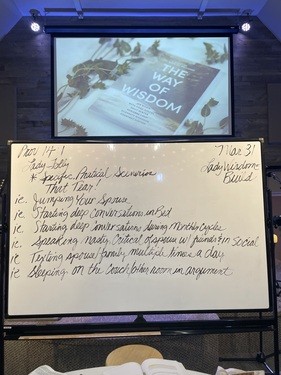 THE WAY
OF
WISDOM
Prov 14:1 7 Mar 31
Lady Folly Lady Wisdom
* Specific Pratical Scenarios Build
That Tear!
ie. Jumping Your Spouse
ie Starting deep conversations in Bed
ie Starting deep conversations during Monthly Cycles
ie. Speaking nasty, Critical of spouse w/ friends + on social
ie Texting spouse/family multiple times a day
ie Sleeping on the Couch/other room in argument